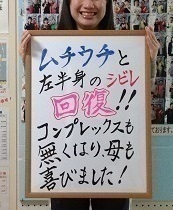 ムチウチと
左半身のシビレ
回復!!
コンプレックスも
無くなり、母も
喜びました!